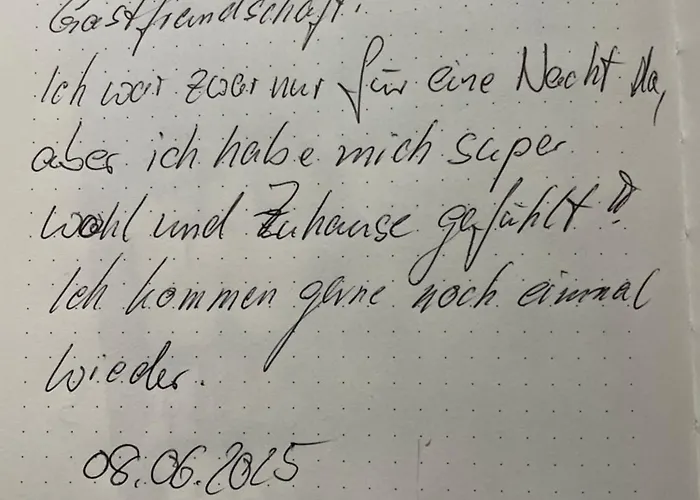 Gastfreundschaft.
Ich war zwar nur für eine Nacht da,
aber ich habe mich super
wohl und Zuhause gefühlt!!
Ich kommen gerne noch einmal
wieder.
08.06.2025